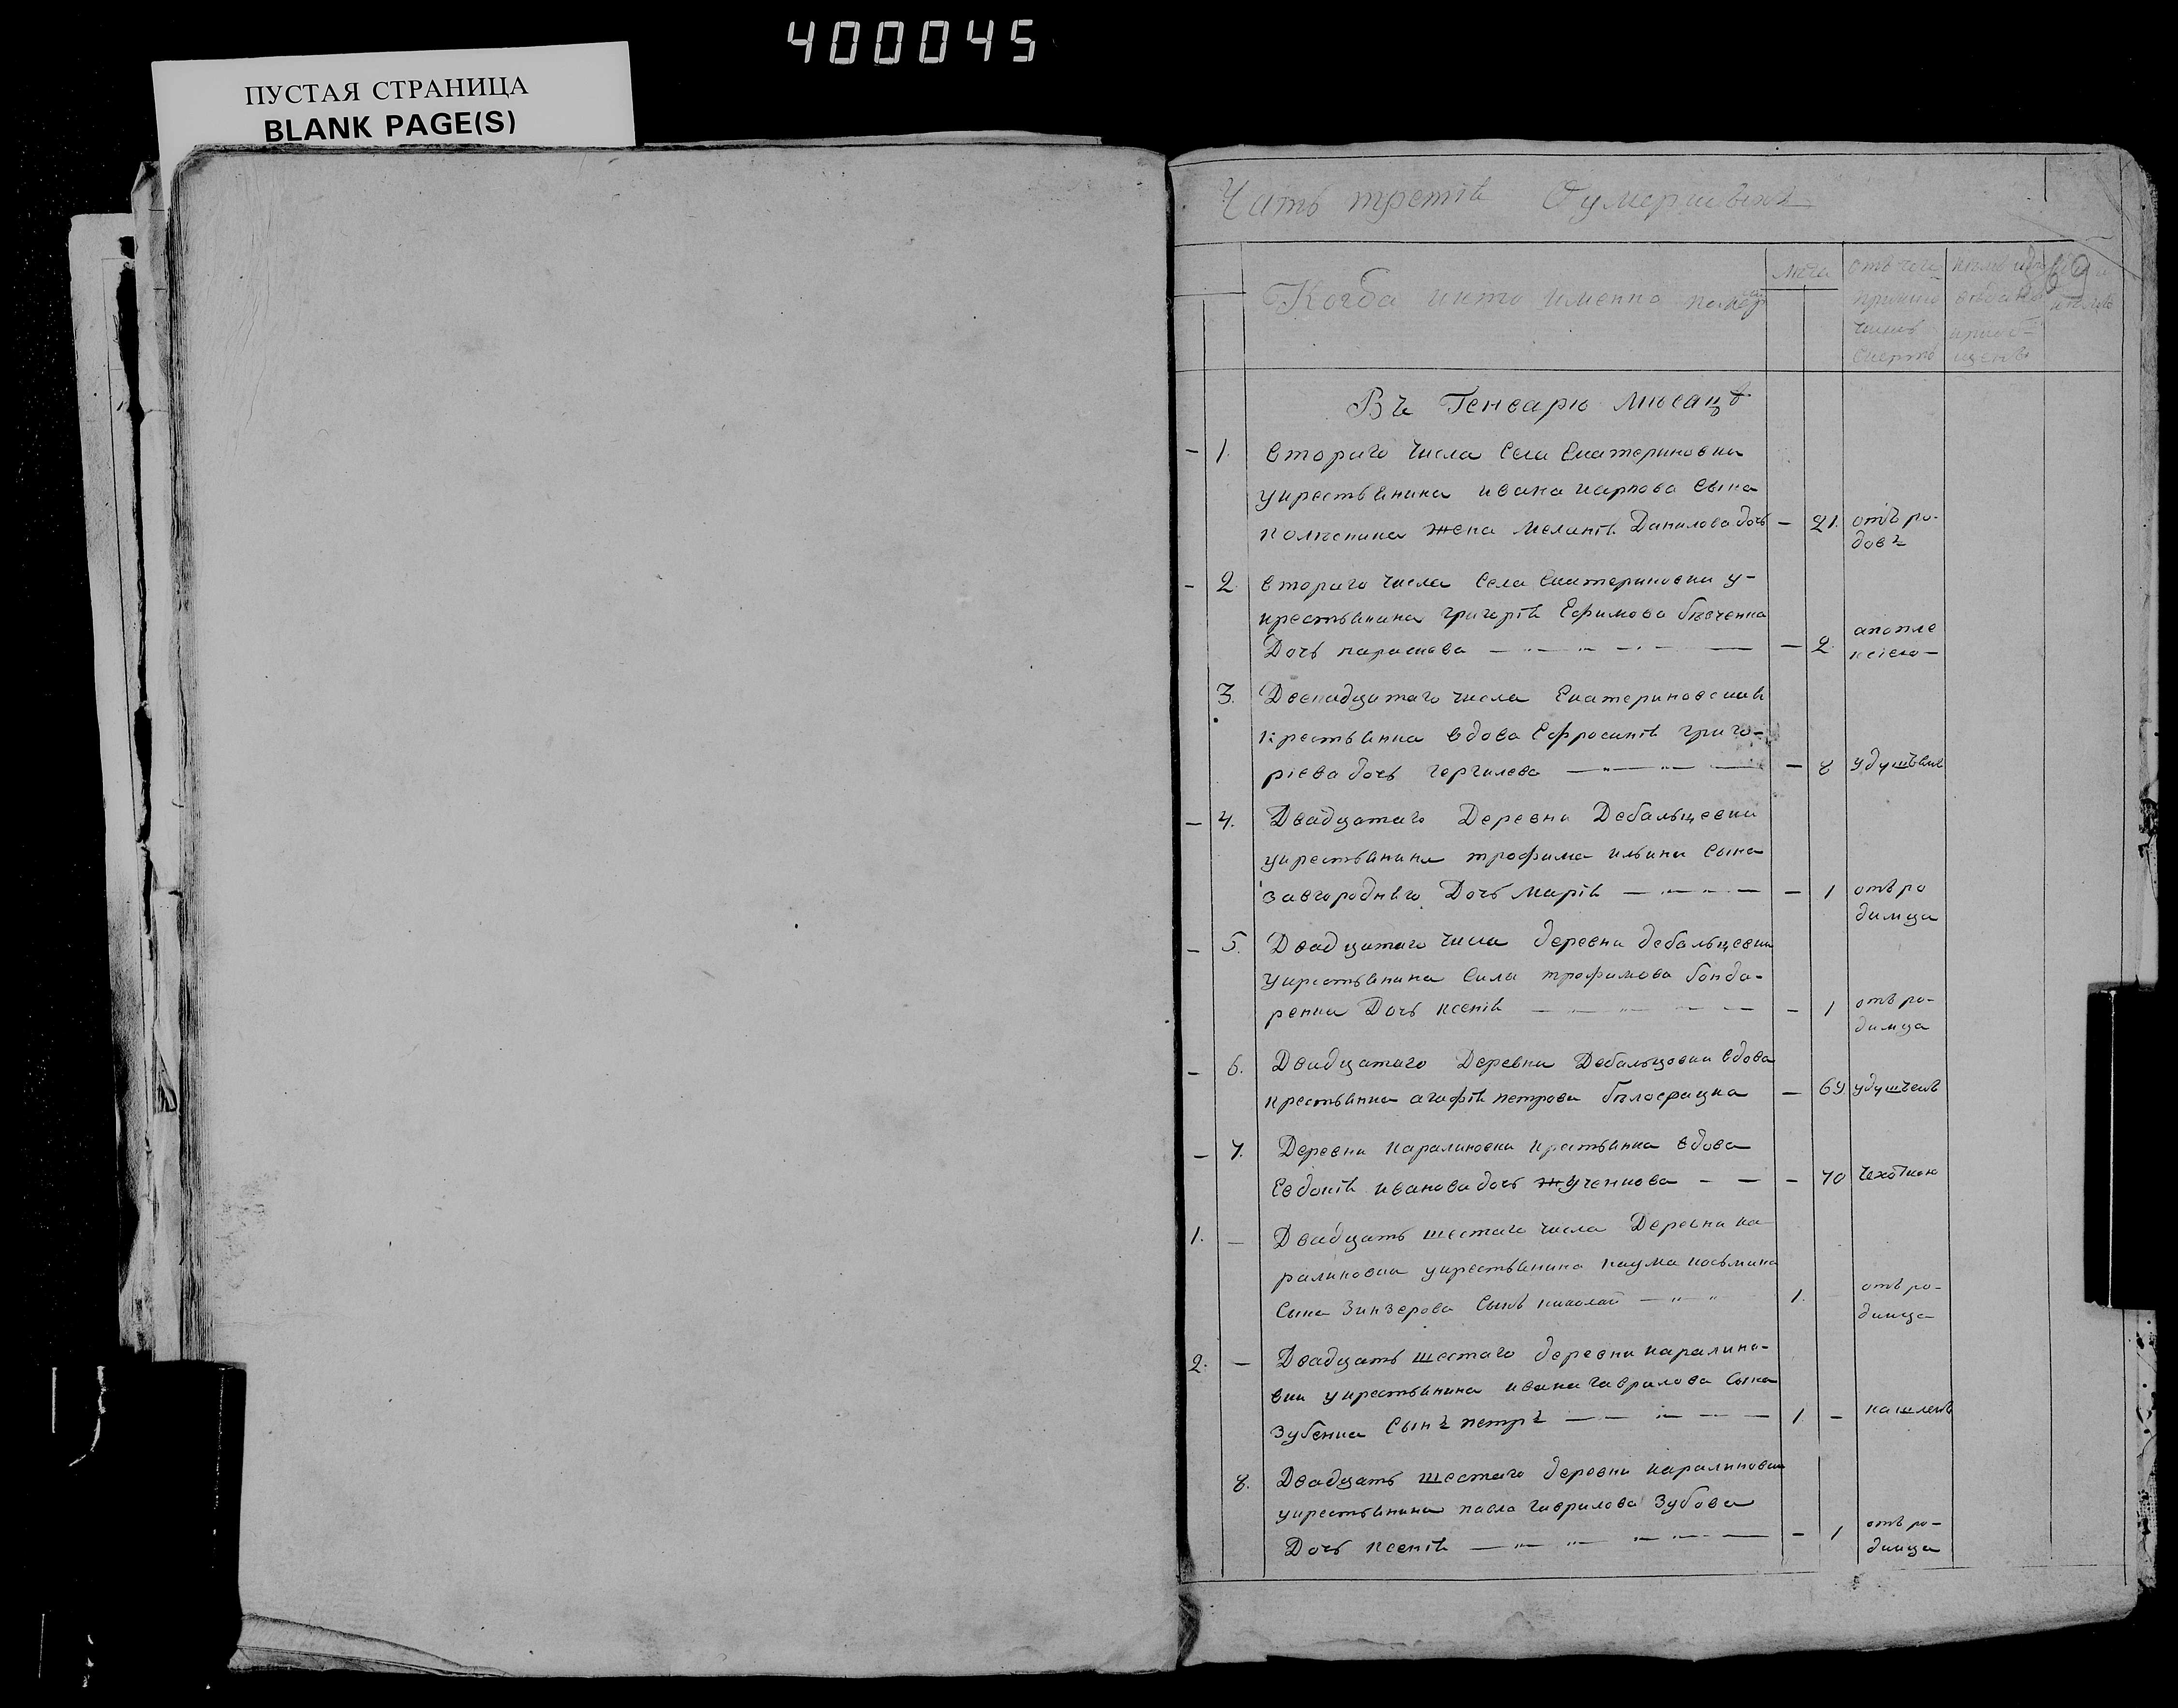 400045
ПУСТАЯ СТРАНИЦА
BLANK PAGE(S)
Чать третія Оумершыхъ
69
Когда икто именно померъ
лѣта
отъ чего
приключи
смерть
Въ Генварю мњсацѣ
1. втораго числа села Екатериновки
укрестьянина ивана карпова сына
жена Меланія Данилова дочь — 21. отъ ро-
довъ
2. втораго числа села Екатериновки у-
крестьянина григорія Ефимова
Дочь параскева — 2. апопле
ксіею
3. Двенадцатаго числа Екатериновская
крестьянка вдова Ефросинія григо-
ріева дочь — 8 удушьемъ
4. Двадцатаго Деревни Дебальцевки
укрестьянина трофима ильина сына
завгородняго Дочь Марія — 1 отъ ро
димца
5. Двадцатаго числа деревни дебальцевки
укрестьянина сила трофимова бонда-
ренка Дочь ксенія — 1 отъ ро-
димца
6. Двадцатаго Деревни Дебальцовки вдова
крестьянка агафія петрова — 69 удушьемъ
7. Деревни каралиновки крестьянка вдова
Евдокія иванова дочь жученкова — 70 чехоткою
1. — Двадцать шестаго числа Деревни ка
ралиновки укрестьянина наума косьмина
сына Зинзерова сынъ николай 1. отъ ро-
димца
2. — Двадцать шестаго деревни каралино-
вки укрестьянина ивана гаврилова сына
Зубенка Сынъ петръ 1 — кашлемъ
8. Двадцать шестаго деревни каралиновки
укрестьянина павла гаврилова Зубова
Дочь ксенія — 1 отъ ро-
димца